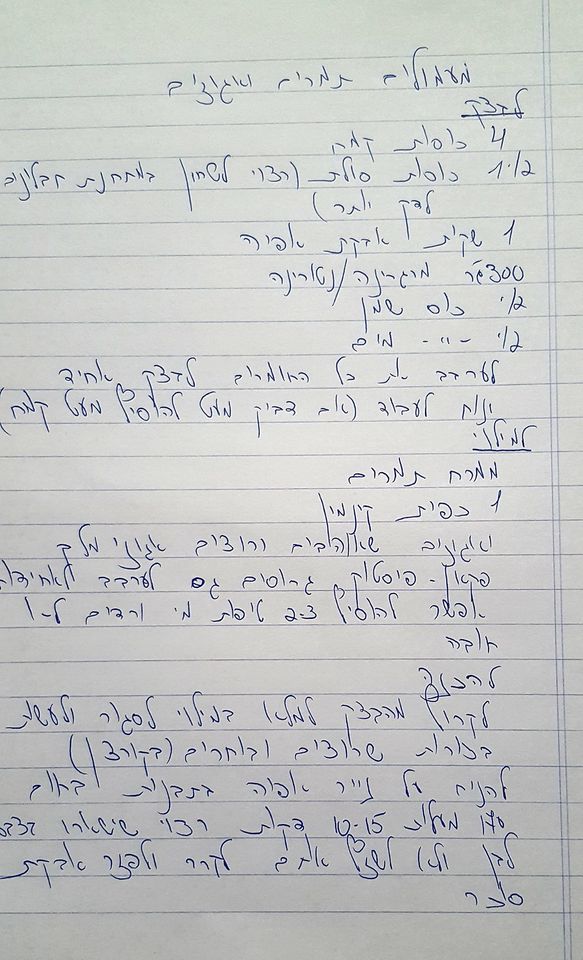 מעמולים תמרים ואגוזים
לבצק
4 כוסות קמח
1 1/2 כוסות סולת (רצוי לטחון במטחנת תבלינים
לדק יותר)
1 שקית אבקת אפיה
300 גר' מרגרינה/נטורינה
1/2 כוס שמן
1/2 -"- מים
לערבב את כל החומרים לבצק אחיד
ונוח לעבוד (אם דביק מעט להוסיף מעט קמח)
למילוי
ממרח תמרים
1 כפית קינמון
ואגוזים שאוהבים ורוצים אגוזי מלך
פקאן - פיסטוק גרוסים גס לערבב לאחידות
אפשר להוסיף 2-3 טיפות מי ורדים ל-1
חובה
להכנה
לקרוץ מהבצק למלא במילוי לסגור ולעשות
בצורות שרוצים ובוחרים (בקורצן)
להניח על נייר אפיה בתבנית בחום
170 מעלות 10-15 דקות רצוי שישארו בצבע
לבן ולא לשזוף אותם לקרר ולפזר אבקת
סוכר